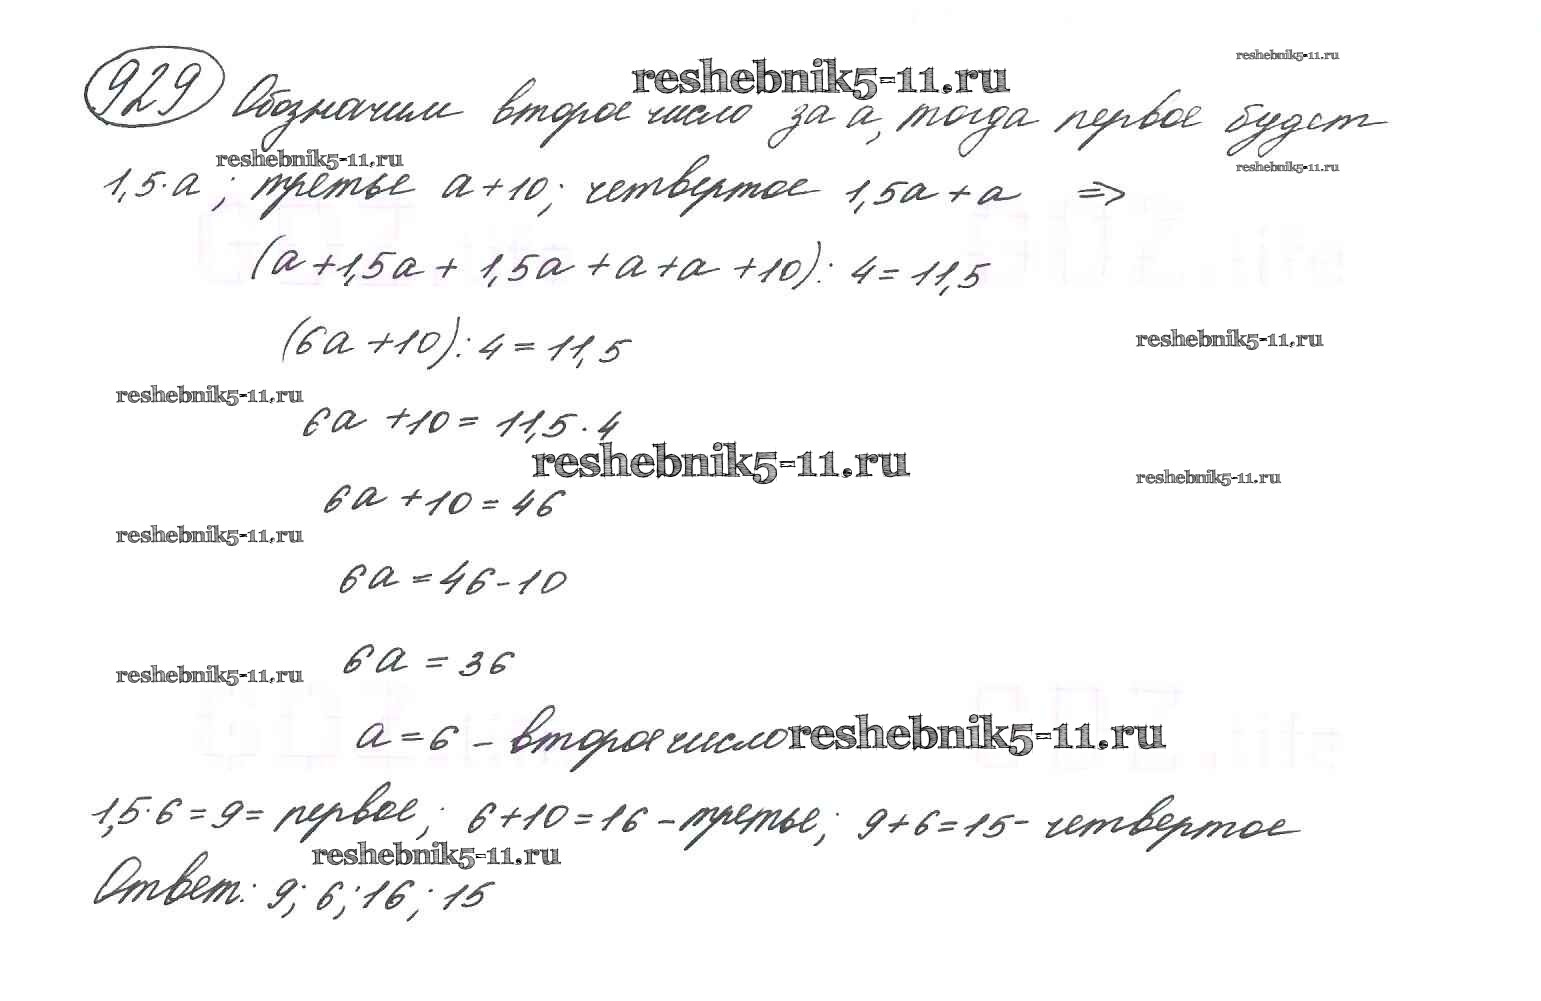 reshebnik5-11.ru
reshebnik5-11.ru
929 Обозначим второе число за а, тогда первое будет
reshebnik5-11.ru
reshebnik5-11.ru
1,5·а; третье а+10; четвертое 1,5а+а =>
(а+1,5а+1,5а+а+а+10):4=11,5
(6а+10):4=11,5
reshebnik5-11.ru
reshebnik5-11.ru
6а+10=11,5·4
reshebnik5-11.ru
reshebnik5-11.ru
6а+10=46
reshebnik5-11.ru
6а=46-10
6а=36
reshebnik5-11.ru
а=6 - второе число reshebnik5-11.ru
1,5·6=9= первое; 6+10=16 - третье; 9+6=15 - четвертое
reshebnik5-11.ru
Ответ: 9; 6; 16; 15